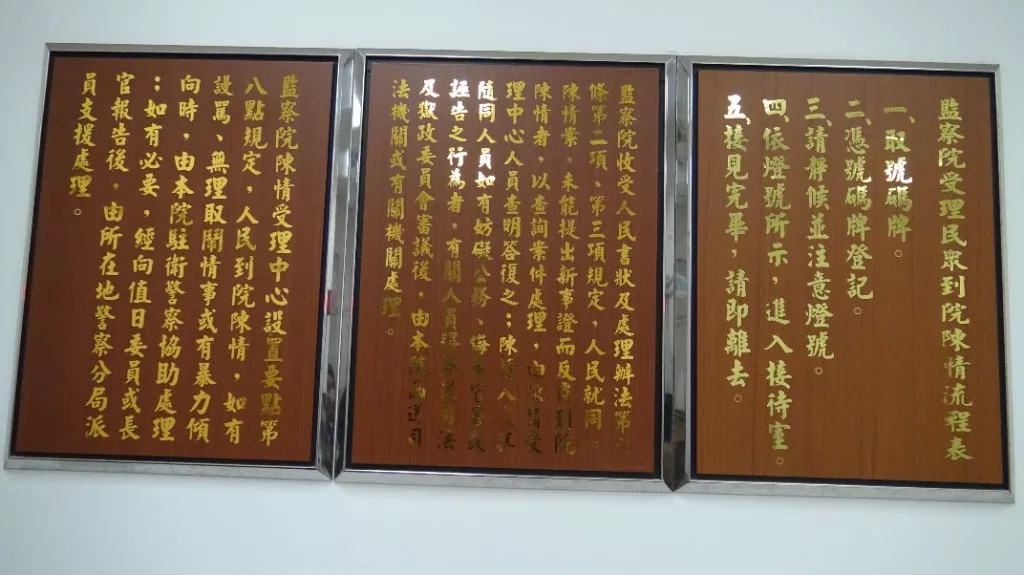 監察院受理民眾到院陳情流程表
一、取號碼牌。
二、憑號碼牌登記。
三、請靜候並注意燈號。
四、依燈號所示，進入接待室。
五、接見完畢，請即離去。
監察院收受人民書狀及處理辦法第
條第二項、第三項規定，人民就同一
陳情案，未能提出新事證而反復到院
陳情者，以查詢案件處理，由陳情受
理中心人員查明答復之；陳情人及其
隨同人員如有妨礙公務、侮辱官署或
誣告之行為者，有關人員得簽送司法
及獄政委員會審議後，由本院函送司
法機關或有關機關處理。
監察院陳情受理中心設置要點第
八點規定，人民到院陳情，如有
謾罵、無理取鬧情事或有暴力傾
向時，由本院駐衛警察協助處理
；如有必要，經向值日委員或長
官報告後，由所在地警察分局派
員支援處理。